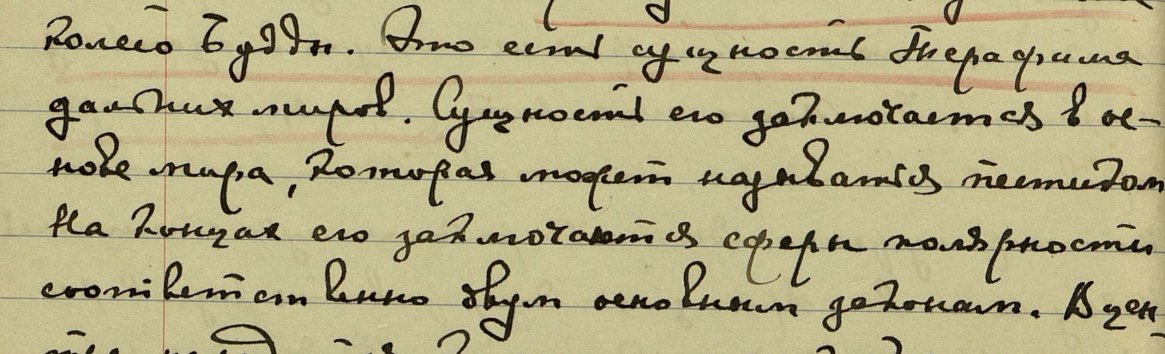 колесо Будды. Это есть сущность Терафима
дальних миров. Сущность его заключается в ос-
нове мира, которая может называться пестиком
На концах его заключаются сферы полярности
соответственно двум основным законам. В цен